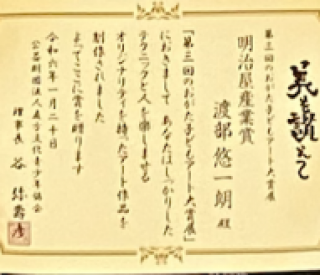 美を讃えて
第三回のおがた子どもアート大賞展
明治屋産業賞
渡部 悠一朗 殿
「第三回のおがた子どもアート大賞展」
におきまして あなたはしっかりした
テクニックと人を楽しませる
オリジナリティを持ったアート作品を
制作されました
よってここに賞を贈ります
令和六年一月二十日
公益財団法人直方文化青少年協会
理事長 谷